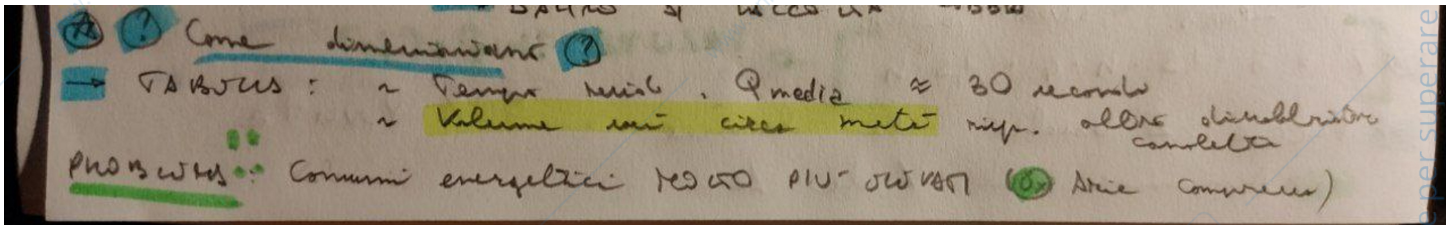 ? Come dimensionano ?
→ TABULAS : ~ Tempo resid. Qmedia ≈ 30 secondi
~ Volume sarà circa metà risp. altro dissabbiatore
completa
PROBLEMA : Consumi energetici MOLTO PIÙ ELEVATI (Aria compressa)
e per superare